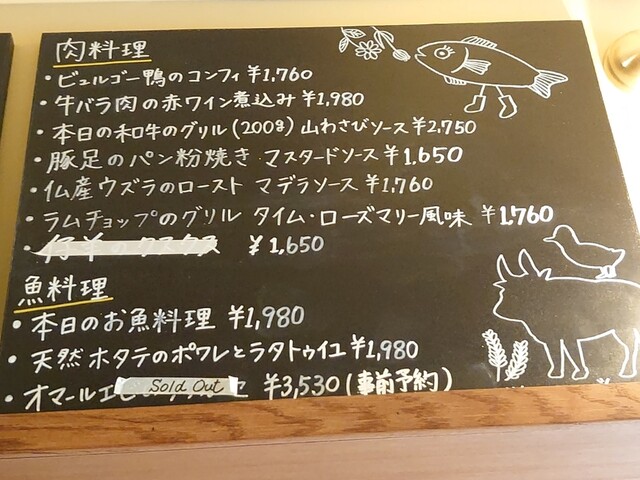 肉料理
・ビュルゴー鴨のコンフィ ¥1,760
・牛バラ肉の赤ワイン煮込み ¥1,980
・本日の和牛のグリル(200g)山わさびソース ¥2,750
・豚足のパン粉焼き マスタードソース ¥1,650
・仏産ウズラのロースト マデラソース ¥1,760
・ラムチョップのグリル タイム・ローズマリー風味 ¥1,760
・ ¥1,650
魚料理
・本日のお魚料理 ¥1,980
・天然ホタテのポワレとラタトゥイユ ¥1,980
・オマールエビ Sold Out ¥3,530(事前予約)